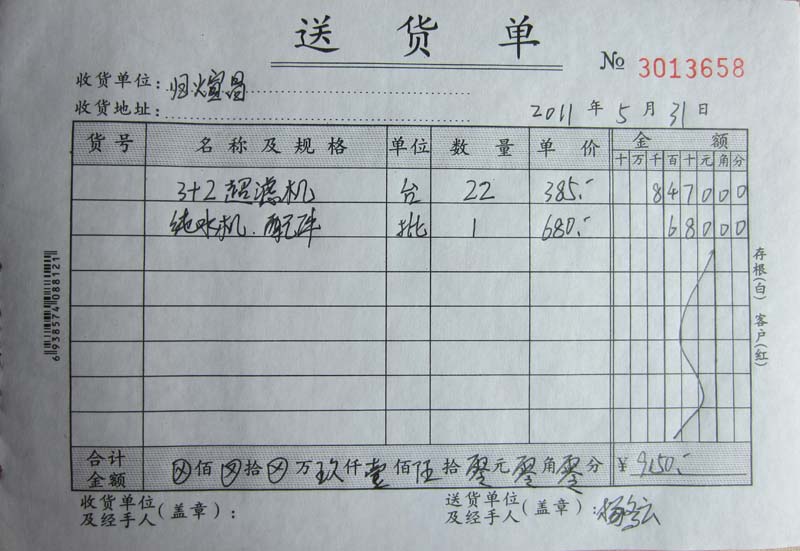 送货单
№ 3013658
收货单位：归煊昌
收货地址：
2011年5月31日
货号 名称及规格 单位 数量 单价 金额
十万千百十元角分
3+2超滤机 台 22 385.- 847000
纯水机.配件 批 1 680.- 68000
合计金额 ⊗佰⊗拾⊗万玖仟壹佰伍拾零元零角零分 ¥9150.-
收货单位及经手人(盖章)：
送货单位及经手人(盖章)：杨
存根(白) 客户(红)
6938574088121